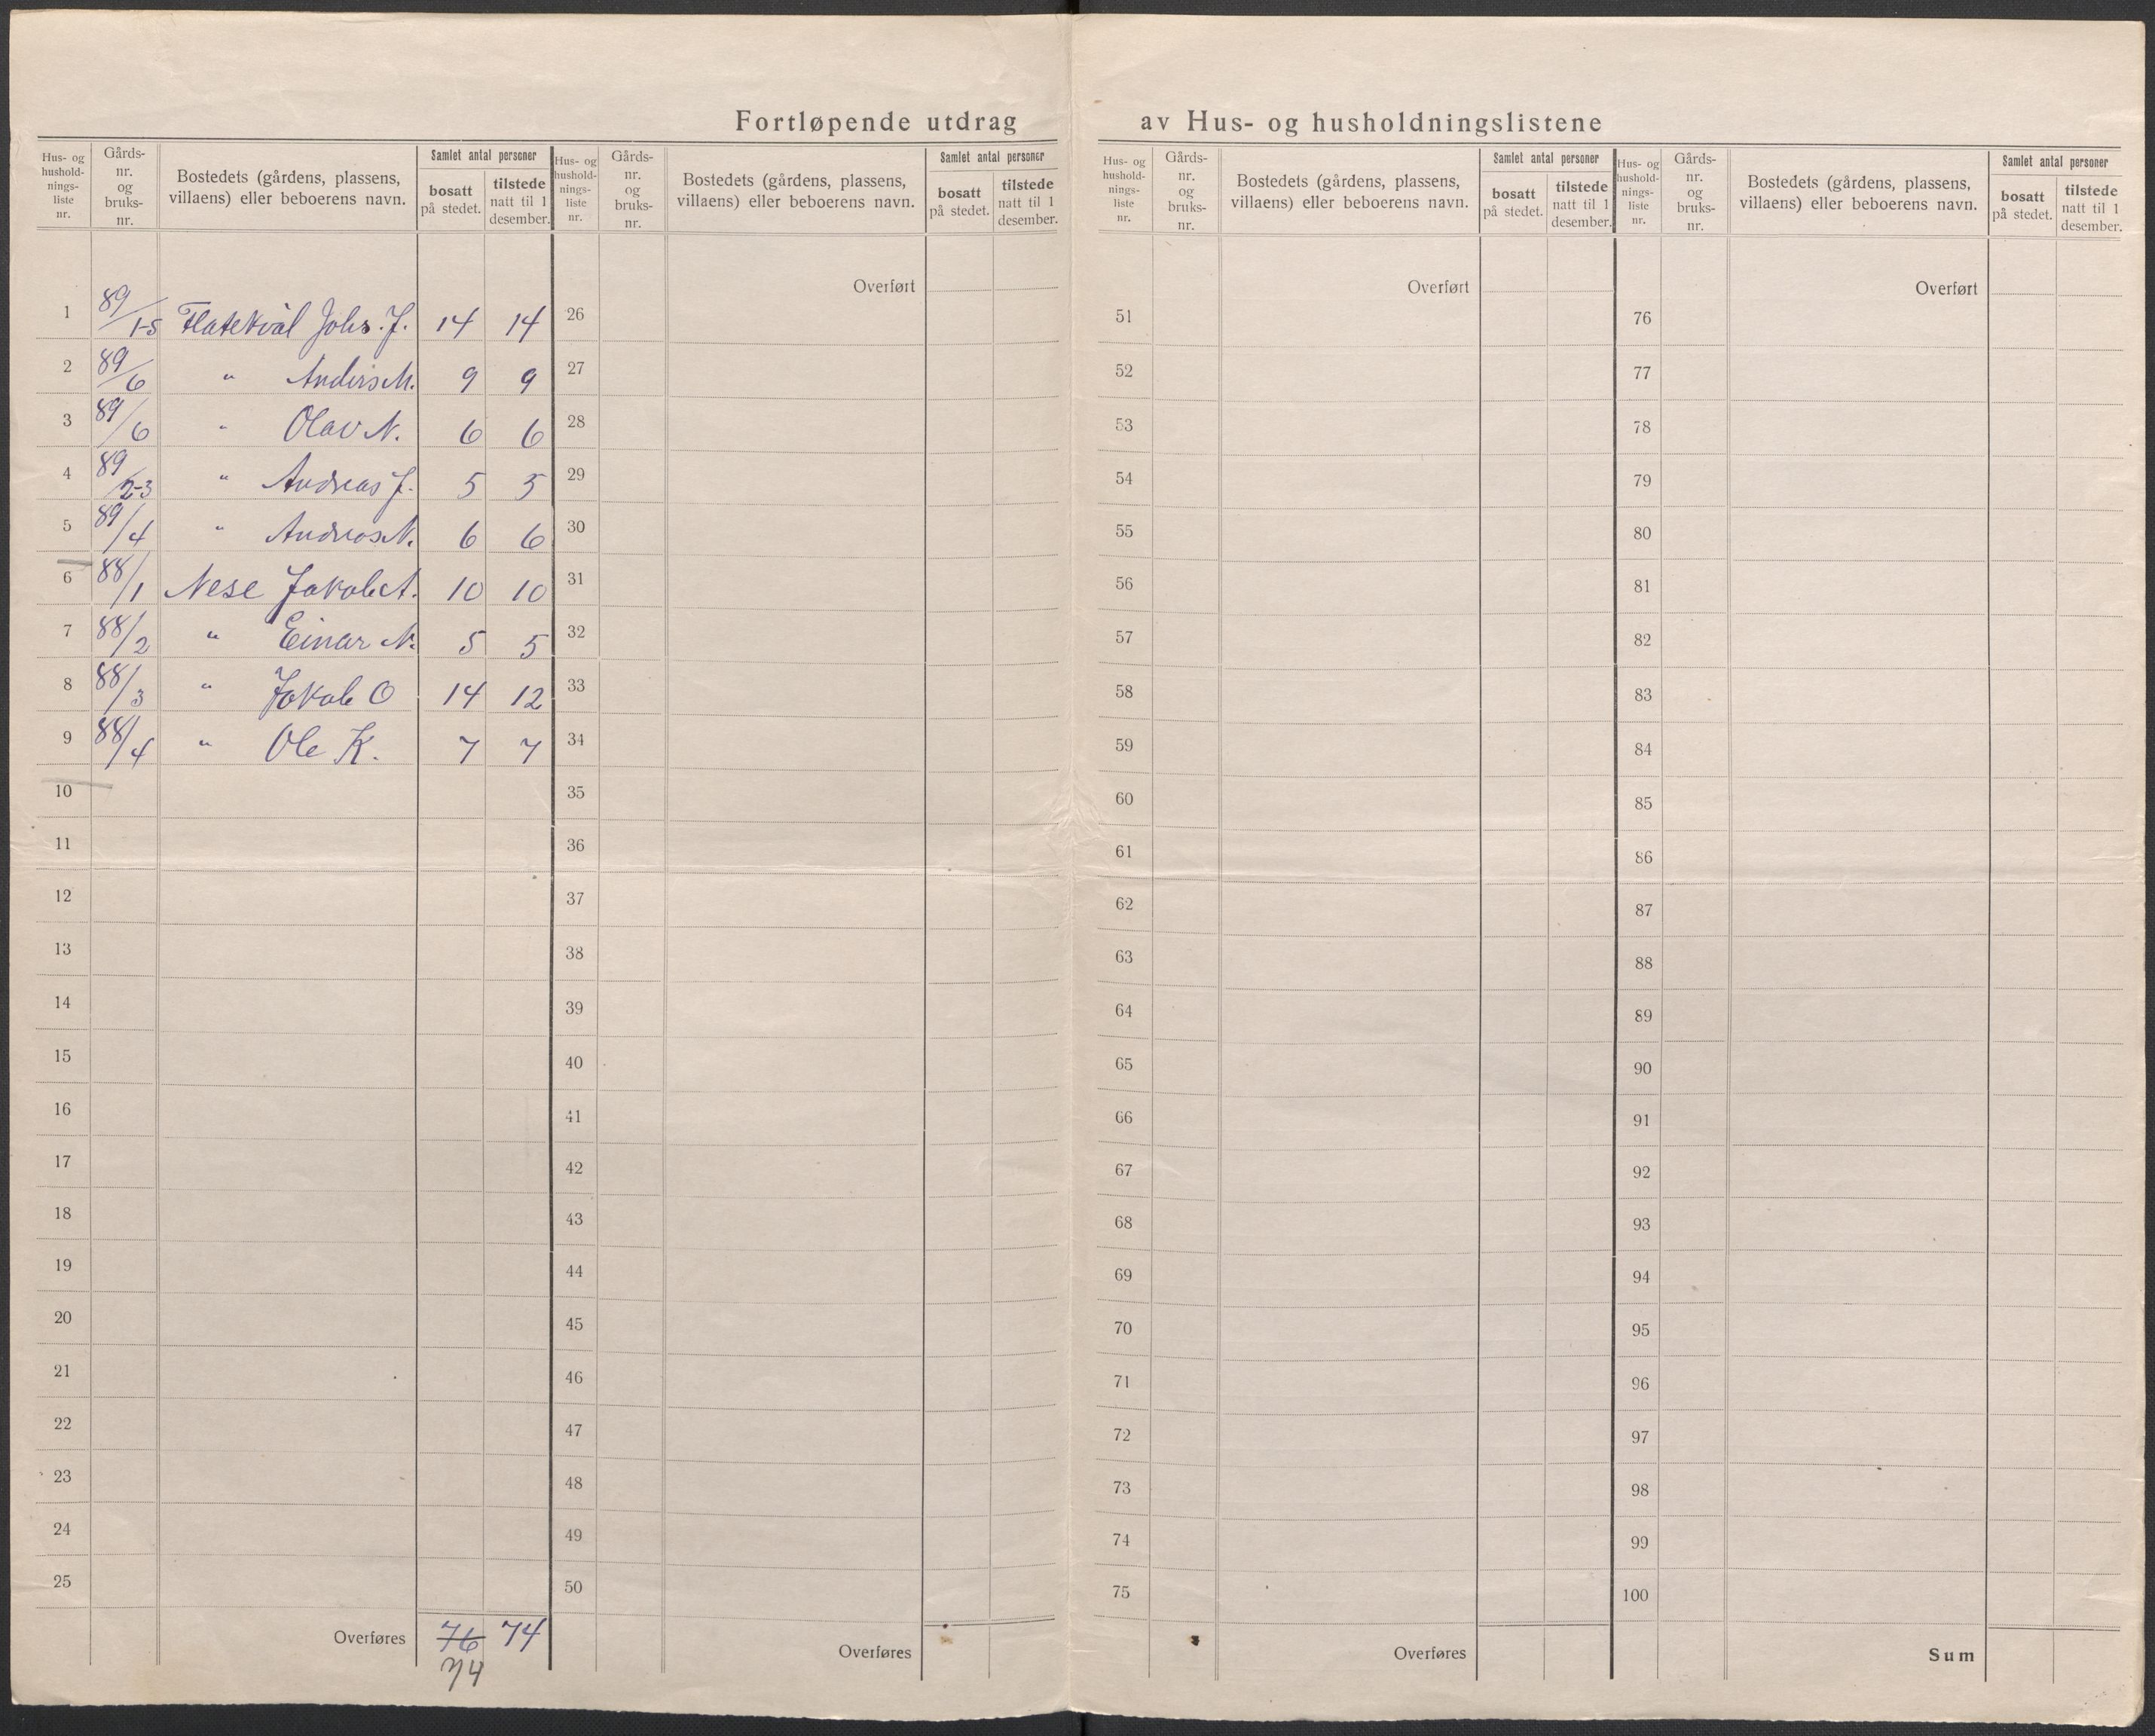 Fortløpende utdrag av Hus- og husholdningslistene
Hus- og hushold-nings-liste nr. Gårds-nr. og bruks-nr. Bostedets (gårdens, plassens, villaens) eller beboerens navn. Samlet antal personer bosatt på stedet. tilstede natt til 1 desember.
Hus- og hushold-nings-liste nr. Gårds-nr. og bruks-nr. Bostedets (gårdens, plassens, villaens) eller beboerens navn. Samlet antal personer bosatt på stedet. tilstede natt til 1 desember.
Hus- og hushold-nings-liste nr. Gårds-nr. og bruks-nr. Bostedets (gårdens, plassens, villaens) eller beboerens navn. Samlet antal personer bosatt på stedet. tilstede natt til 1 desember.
Hus- og hushold-nings-liste nr. Gårds-nr. og bruks-nr. Bostedets (gårdens, plassens, villaens) eller beboerens navn. Samlet antal personer bosatt på stedet. tilstede natt til 1 desember.
Overført Overført Overført
1 89/1-5 Flatekvål Johs. J. 14 14 26 51 76
2 89/6 " Anders M. 9 9 27 52 77
3 89/6 " Olav N. 6 6 28 53 78
4 89/2-3 " Andreas J. 5 5 29 54 79
5 89/4 " Andreas N. 6 6 30 55 80
6 88/1 Nese Jakob A. 10 10 31 56 81
7 88/2 " Einar N. 5 5 32 57 82
8 88/3 " Jakob O 14 12 33 58 83
9 88/4 " Ole K. 7 7 34 59 84
10 35 60 85
11 36 61 86
12 37 62 87
13 38 63 88
14 39 64 89
15 40 65 90
16 41 66 91
17 42 67 92
18 43 68 93
19 44 69 94
20 45 70 95
21 46 71 96
22 47 72 97
23 48 73 98
24 49 74 99
25 50 75 100
Overføres 76 74 Overføres Overføres Sum
74